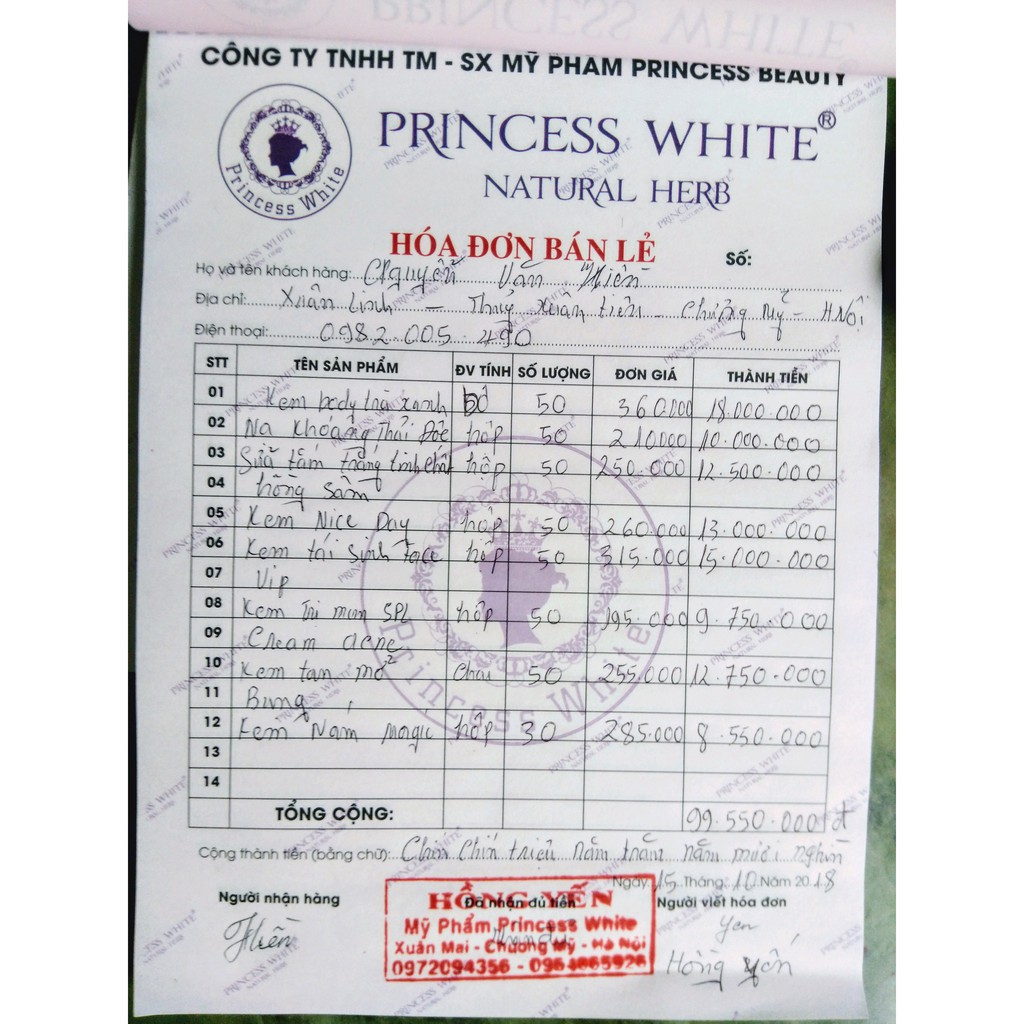 CÔNG TY TNHH TM - SX MỸ PHẨM PRINCESS BEAUTY
PRINCESS WHITE®
NATURAL HERB
Princess White
HÓA ĐƠN BÁN LẺ Số:
Họ và tên khách hàng: Nguyễn Văn Hiền
Địa chỉ: Xuân Linh - Thuỷ Xuân tiên - Chương Mỹ - HNội
Điện thoại: 0982.005.490
STT TÊN SẢN PHẨM ĐV TÍNH SỐ LƯỢNG ĐƠN GIÁ THÀNH TIỀN
01 Kem body trà xanh 50 360.000 18.000.000
02 Na Khoáng Thải Độc hộp 50 210000 10.000.000
03 Sữa tắm trắng tinh chất hộp 50 250.000 12.500.000
04 hồng sâm
05 Kem Nice Day hộp 50 260.000 13.000.000
06 Kem tái sinh face hộp 50 315.000
07 Vip
08 Kem Trị mụn SPL hộp 50 195.000 9.750.000
09 Cream acne
10 Kem tan mỡ Chai 50 255.000 12.750.000
11 Bụng
12 Kem Nám magic hộp 30 285.000 8.550.000
13
14
TỔNG CỘNG: 99.550.000 đ
Cộng thành tiền (bằng chữ): Chín Chín triệu năm trăm năm mươi nghìn
Ngày 15 Tháng 10 Năm 2018
Người nhận hàng Đã nhận đủ tiền Người viết hóa đơn
Hiền Yen
Hồng Yến
HỒNG YẾN
Mỹ Phẩm Princess White
Xuân Mai - Chương Mỹ - Hà Nội
0972094356 - 0964865926